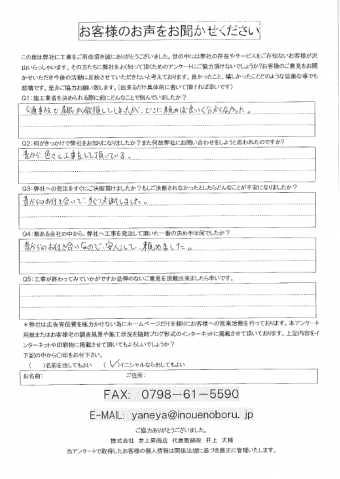 お客様のお声をお聞かせください
この度は弊社に工事をご用命頂き誠にありがとうございました。世の中には弊社の存在やサービスをご存知ないお客様が沢
山いらっしゃいます。その方たちに弊社をよく知って頂くためのアンケートにご協力頂けないでしょうか?お客様のご意見をお聞
かせいただき今後の活動に反映させていただきたいと考えております。良かったこと、嬉しかったことどのような些細な事でも
結構です。是非ご協力お願い致します。(出来るだけ具体的に書いて頂ければ幸いです)
Q1:施工業者を決められる際に前にどんなことで悩んでいましたか?
どこに頼めば良いか分からなかった。
Q2:何がきっかけで弊社をお知りになりましたか?また何故弊社にお問い合わせをしようと思われたのですか?
昔から色々と工事をして頂いている。
Q3:弊社への発注をすぐにご決断頂けましたか?もしご決断されなかったとしたらどんなことが不安になりましたか?
昔からのお付き合いで、すぐ決断しました。
Q4:数ある会社の中から、弊社へ工事を発注して頂いた一番の決め手は何でしたか?
昔からのお付き合いなので、安心して頼めました。
Q5:工事が終わってみていかがですか忌憚のないご意見を頂戴出来ましたら幸いです。
*弊社は広告宣伝費を極力かけない為にホームページだけを頼りにお客様への営業活動を行っております。本アンケート
用紙またはお客様宅の調査風景や施工状況を随時ブログ形式のインターネットに掲載させて頂いております。上記内容をイ
ンターネットや印刷物に掲載させて頂いてもよろしいでしょうか?
下記の中から〇印をお付下さい。
( )名前を出してもよい (✓)イニシャルなら出してもよい
お名前: ご住所:
FAX: 0798-61-5590
E-MAIL: yaneya@inouenoboru.jp
ご協力ありがとうございました。
株式会社 井上昇商店 代表取締役 井上 大輔
当アンケートで取得したお客様の個人情報は関係法類に基づき厳正に管理いたします。